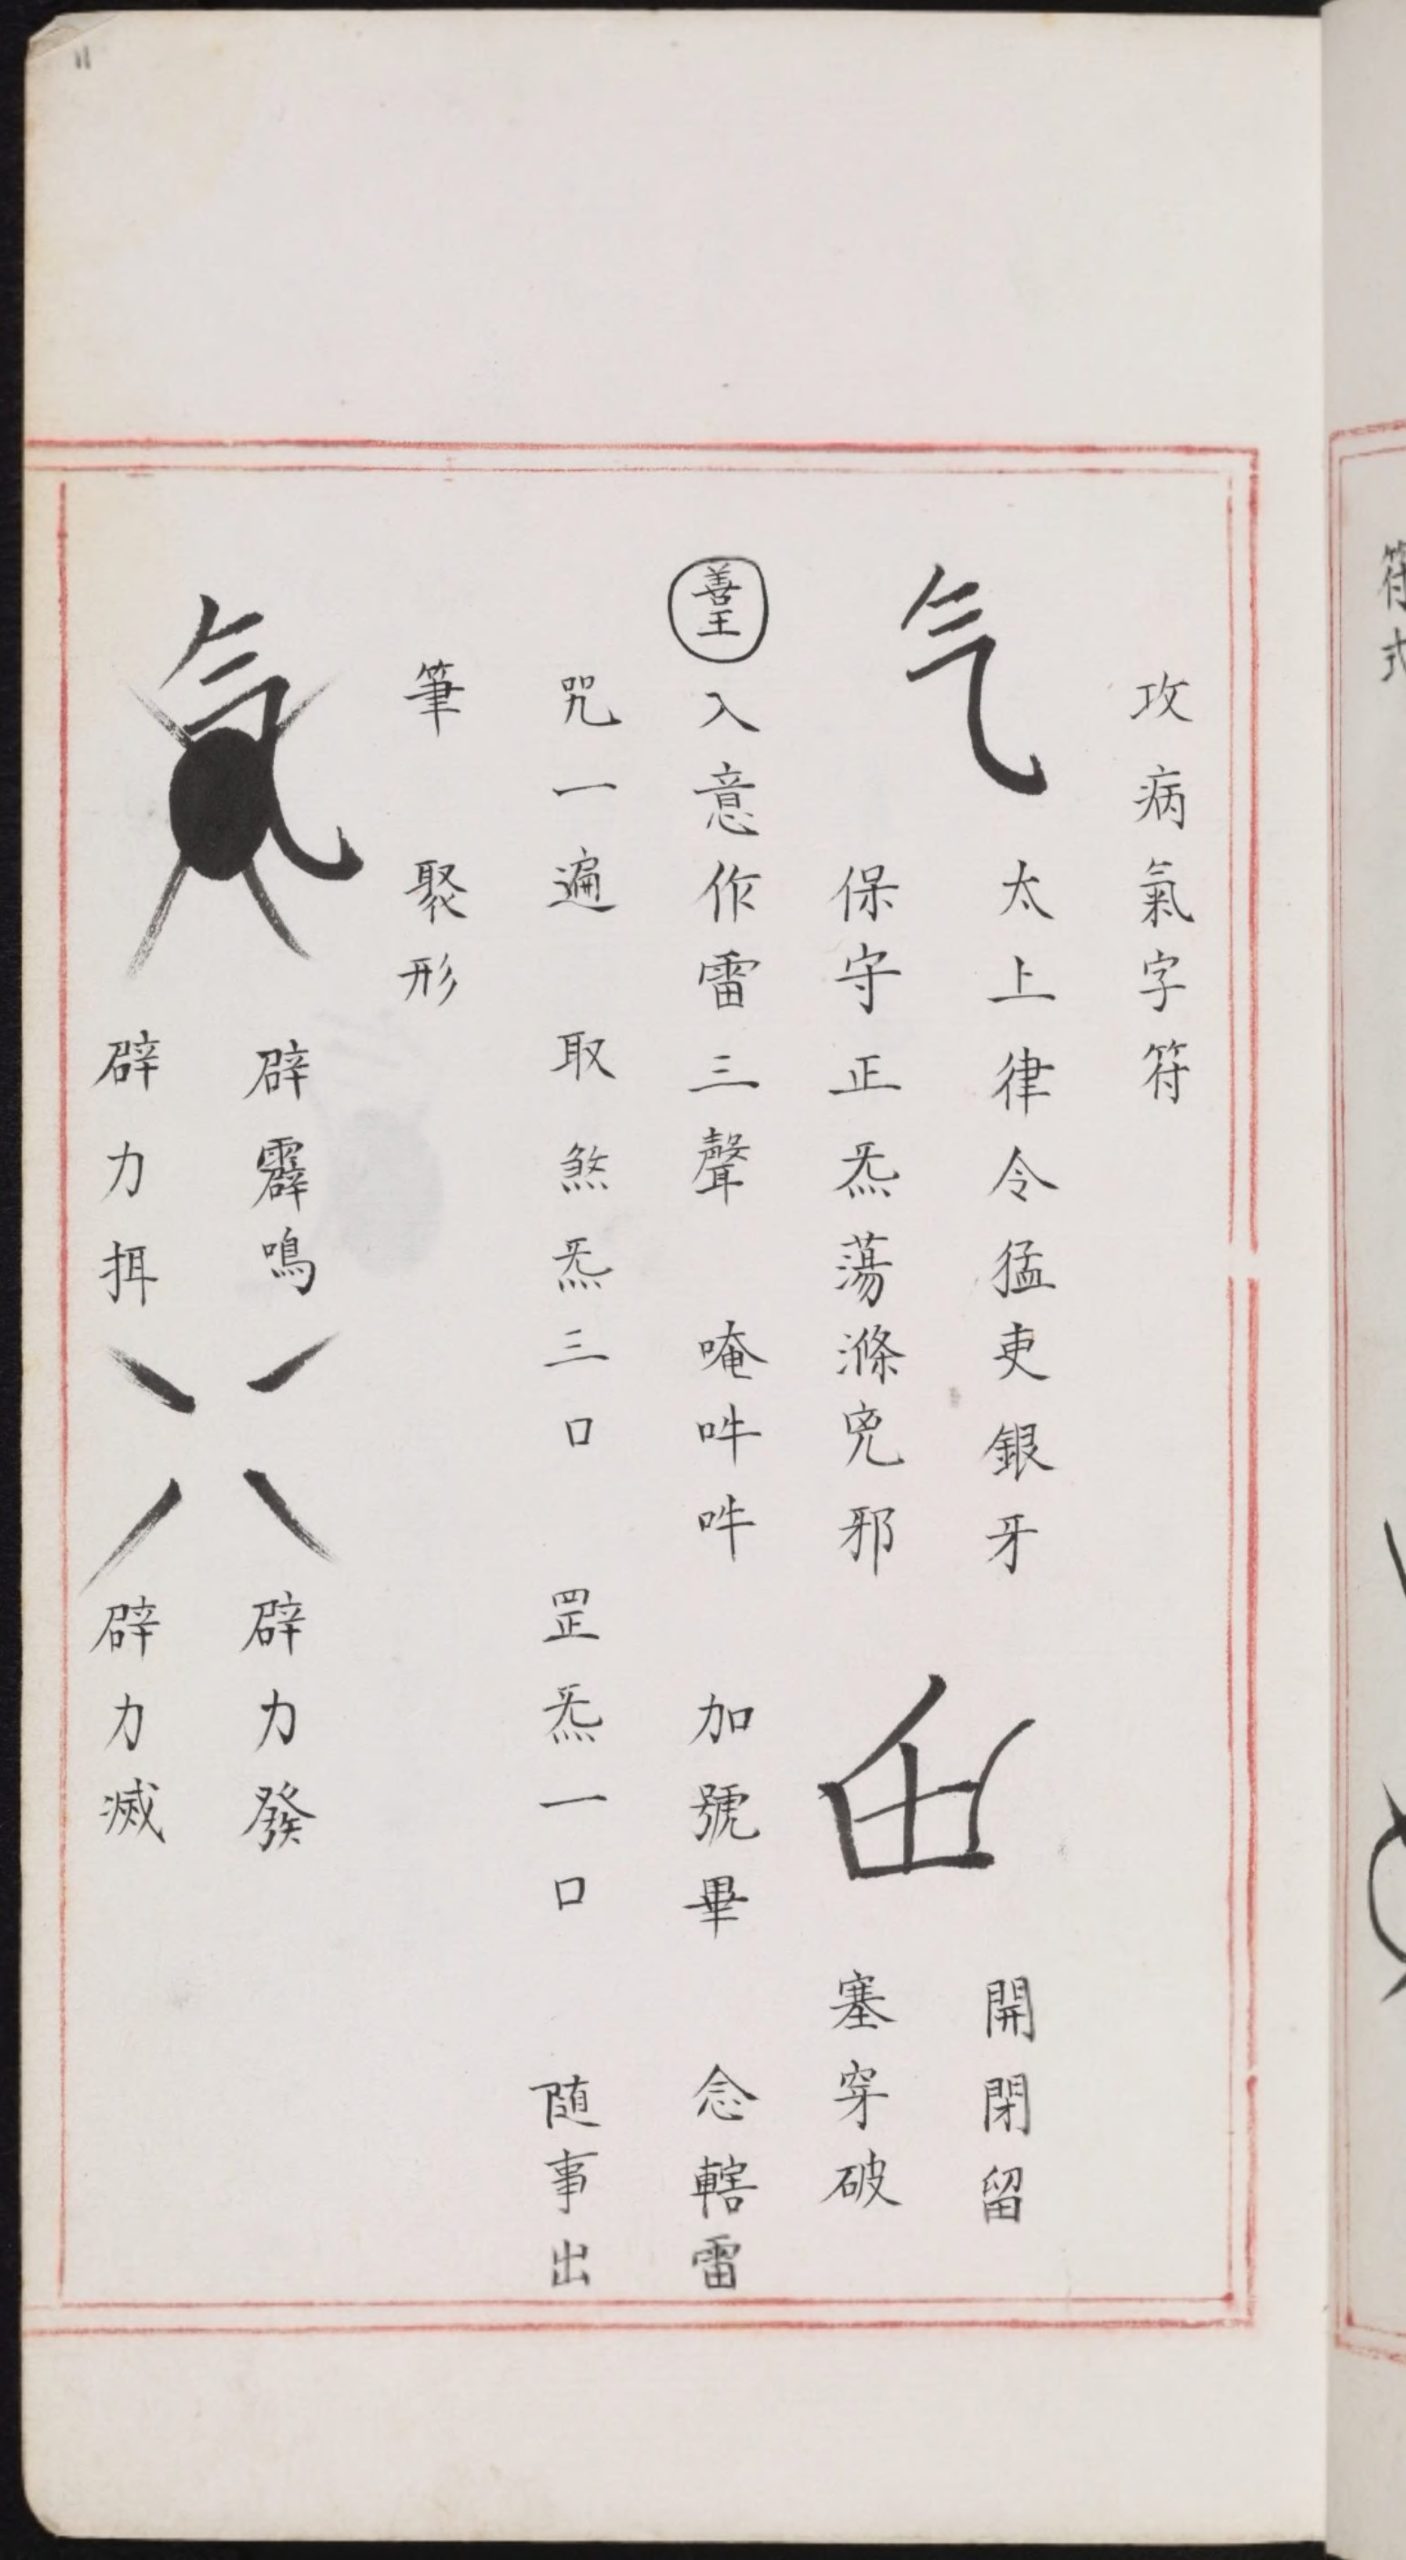 攻病氣字符
气
太上律令猛吏銀牙
保守正炁蕩滌兇邪
開閉留
塞穿破
善王入意作雷三聲 唵吽吽 加號畢 念轄雷
咒一遍 取煞炁三口 罡炁一口 随事出
筆 聚形
气
辟霹鳴 辟力發
辟力揖 辟力滅
符式